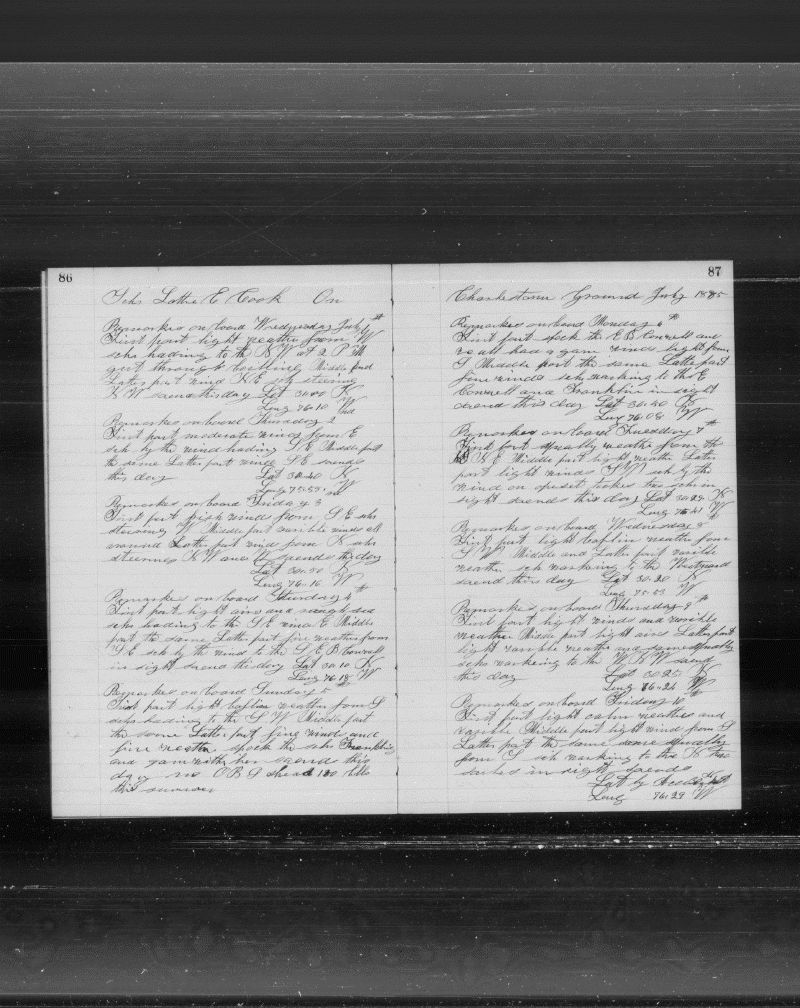 86
Schr Lottie E Cook On
Remarkes on board Wedgnesday July 1st
First part light weather from W
schr hading to the N W at 2 P M
got through boilling Middle and
Later part wind N E sch steering
N W soends this day Lat 31-00 N
Long 76-10 W
Remarkes on board Thursday 2nd
First part moderate wind from E
sch by the wind hading S E Middle part
the same Latter part wind S E soends
this day Lat 30-40 N
Long 75-55 W
Remarkes on board Friday 3rd
First part fresh wind from S E schr
steering W Middle part varible winds all
around Latter part wind from N schr
steernes N W and W soends this day
Lat 30-30 N
Long 76-16 W
Remarkes on board Saturday 4th
First part light airs and rough sea
schr hading to the S E wind E Middle
part the same Latter part fine weather from
S E sch by the wind to the S E B Conwell
in sight soend this day Lat 30 10 N
Long 76 18 W
Remarkes on board Sunday 5
First part light weather from S
schr hading to the S W Middle part
the same Latter part fine winds and
fine weather spock the schr Franklin
and gam with her soend this
day no O B G shead 100 bbls
this summer
87
Charlestown Ground July 1885
Remarkes on board Monday 6th
First part spock the E B Conwell and
we all had a gam winds light from
S Middle part the same Latter part
fine winds sch working to the E
Conwell and Franklin in sight
soend this day Lat 30-40 N
Long 76-08 W
Remarkes on board Tuesday 7th
First part squally weather from the
N E Middle part light weather Latter
part light winds S W sch by the
wind on opisit tackes two sch in
sight soends this day Lat 30-25 N
Long 75-41 W
Remarkes on board Wednesday 8
First part light weather from
S W Middle and Latter part varible
weather sch working to the Westward
soend this day Lat 30-20 N
Long 75-53 W
Remarkes on board Thursday 9th
First part light winds and varible
weather Middle part light airs Latter part
light varible weather and some squally
schr working to the W N W soend
this day Lat 30-25 N
Long 76-24 W
Remarkes on board Friday 10th
First part light calm weather and
varible Middle part light wind from S
Latter part the same some squally
from S sch working to the N two
sailes in sight soends
Lat by
Long 76-29 W